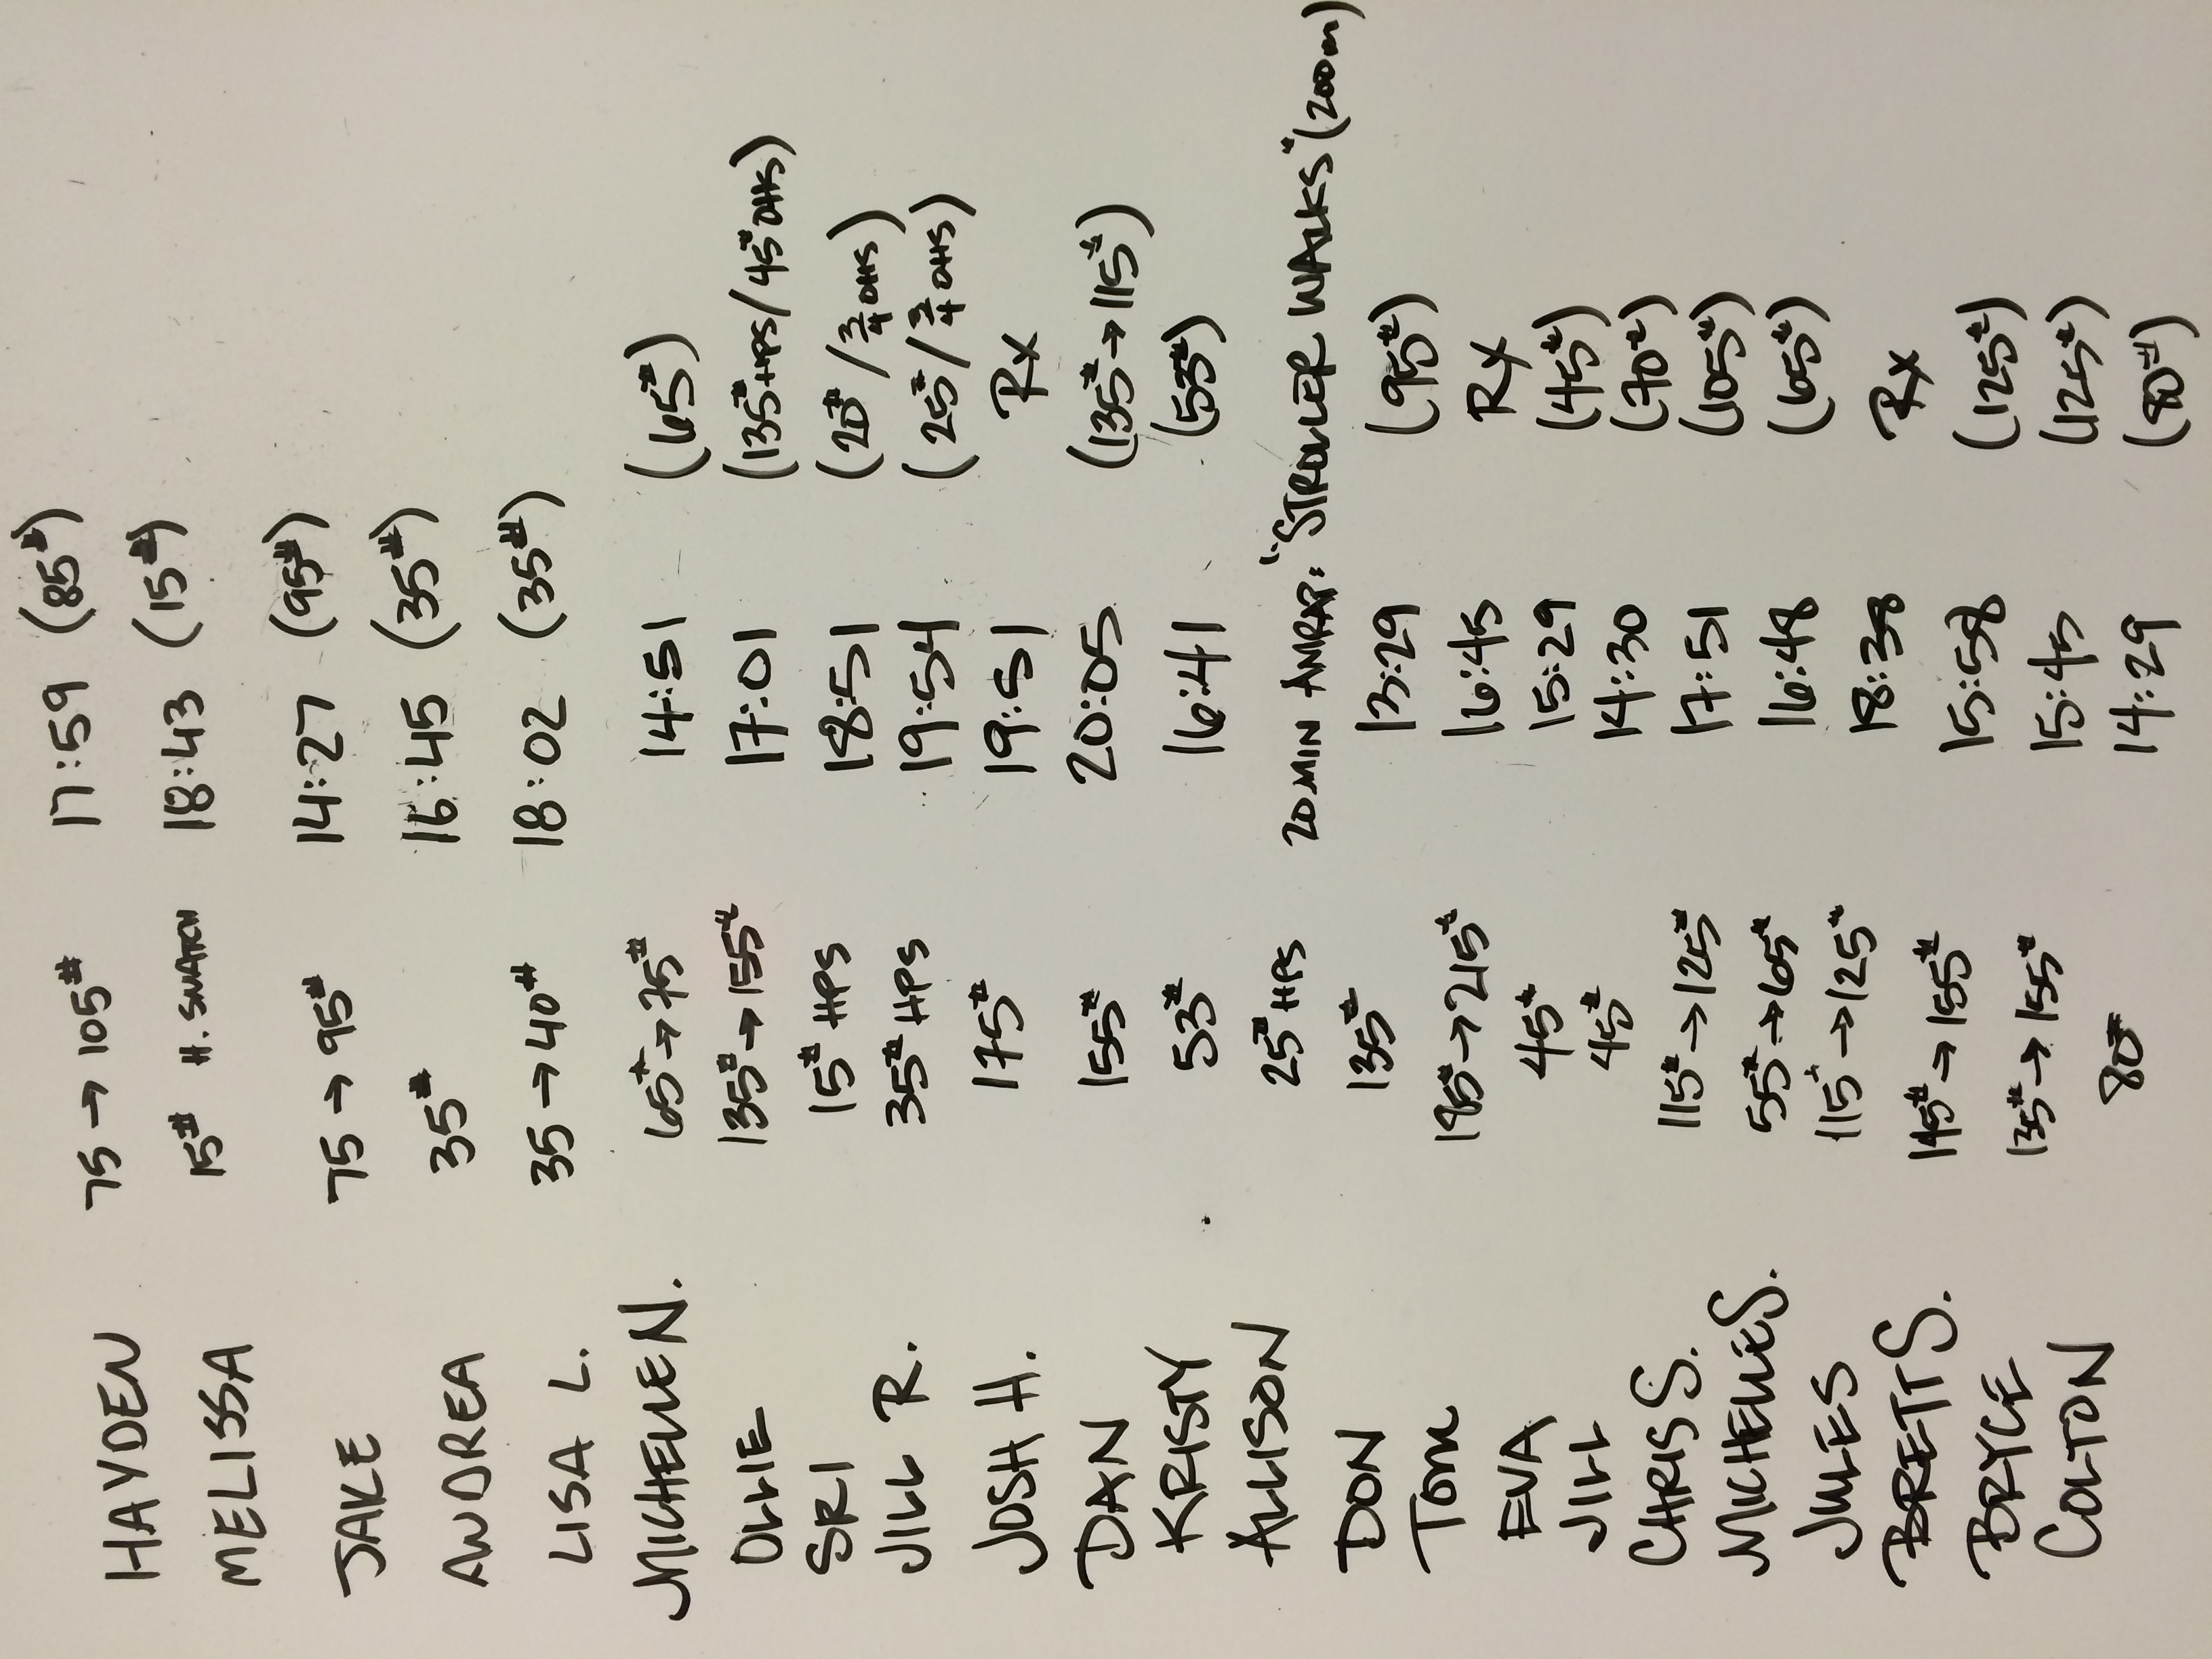 HAYDEN 75 → 105# 17:59 (85#)
MELISSA 15# H. SNATCH 18:43 (15#)
JAKE 75 → 95# 14:27 (95#)
ANDREA 35# 16:45 (35#)
LISA L. 35 → 40# 18:02 (35#)
MICHELLE N. 65# → 75# 14:51 (65#)
OLLIE 135# → 155# 17:01 (135# HPS/45# OHS)
SRI 15# HPS 18:51 (20#/3/4 OHS)
JILL R. 35# HPS 19:54 (25#/3/4 OHS)
JOSH H. 175# 19:51 Rx
DAN 155# 20:05 (135# → 115#)
KRISTY 53# 16:41 (53#)
ALLISON 25# HPS 20 MIN AMRAP: "STROLLER WALKS" (200m)
DON 135# 13:29 (95#)
TOM 195# → 215# 16:45 Rx
EVA 45# 15:29 (45#)
JILL 45# 14:30 (70#)
CHRIS S. 115# → 125# 17:51 (105#)
MICHELLE S. 55# → 65# 16:48 (65#)
JULES 115# → 125# 18:38 Rx
BRETT S. 145# → 155# 15:58 (125#)
BRYCE 135# → 155# 15:45 (125#)
COLTON 80# 14:29 (80#)